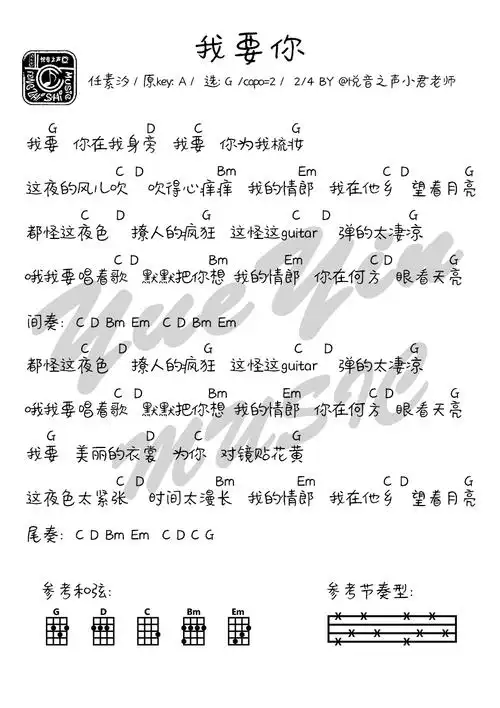 我要你
悦音之声
MUSIC
任素汐 / 原key: A / 选: G /capo=2 / 2/4 BY @悦音之声小君老师
G D C G
我要 你在我身旁 我要 你为我梳妆
C D Bm Em C D G
这夜的风儿吹 吹得心痒痒 我的情郎 我在他乡 望着月亮
C D G C D G
都怪这夜色 撩人的疯狂 这怪这guitar 弹的太凄凉
C D Bm Em C D G
哦我要唱着歌 默默把你想 我的情郎 你在何方 眼看天亮
间奏: C D Bm Em C D Bm Em
C D G C D G
都怪这夜色 撩人的疯狂 这怪这guitar 弹的太凄凉
C D Bm Em C D G
哦我要唱着歌 默默把你想 我的情郎 你在何方 眼看天亮
G D C G
我要 美丽的衣裳 为你 对镜贴花黄
C D Bm Em C D G
这夜色太紧张 时间太漫长 我的情郎 我在他乡 望着月亮
尾奏: C D Bm Em C D C G
参考和弦: 参考节奏型:
G D C Bm Em
Yue Yin
MUSIC